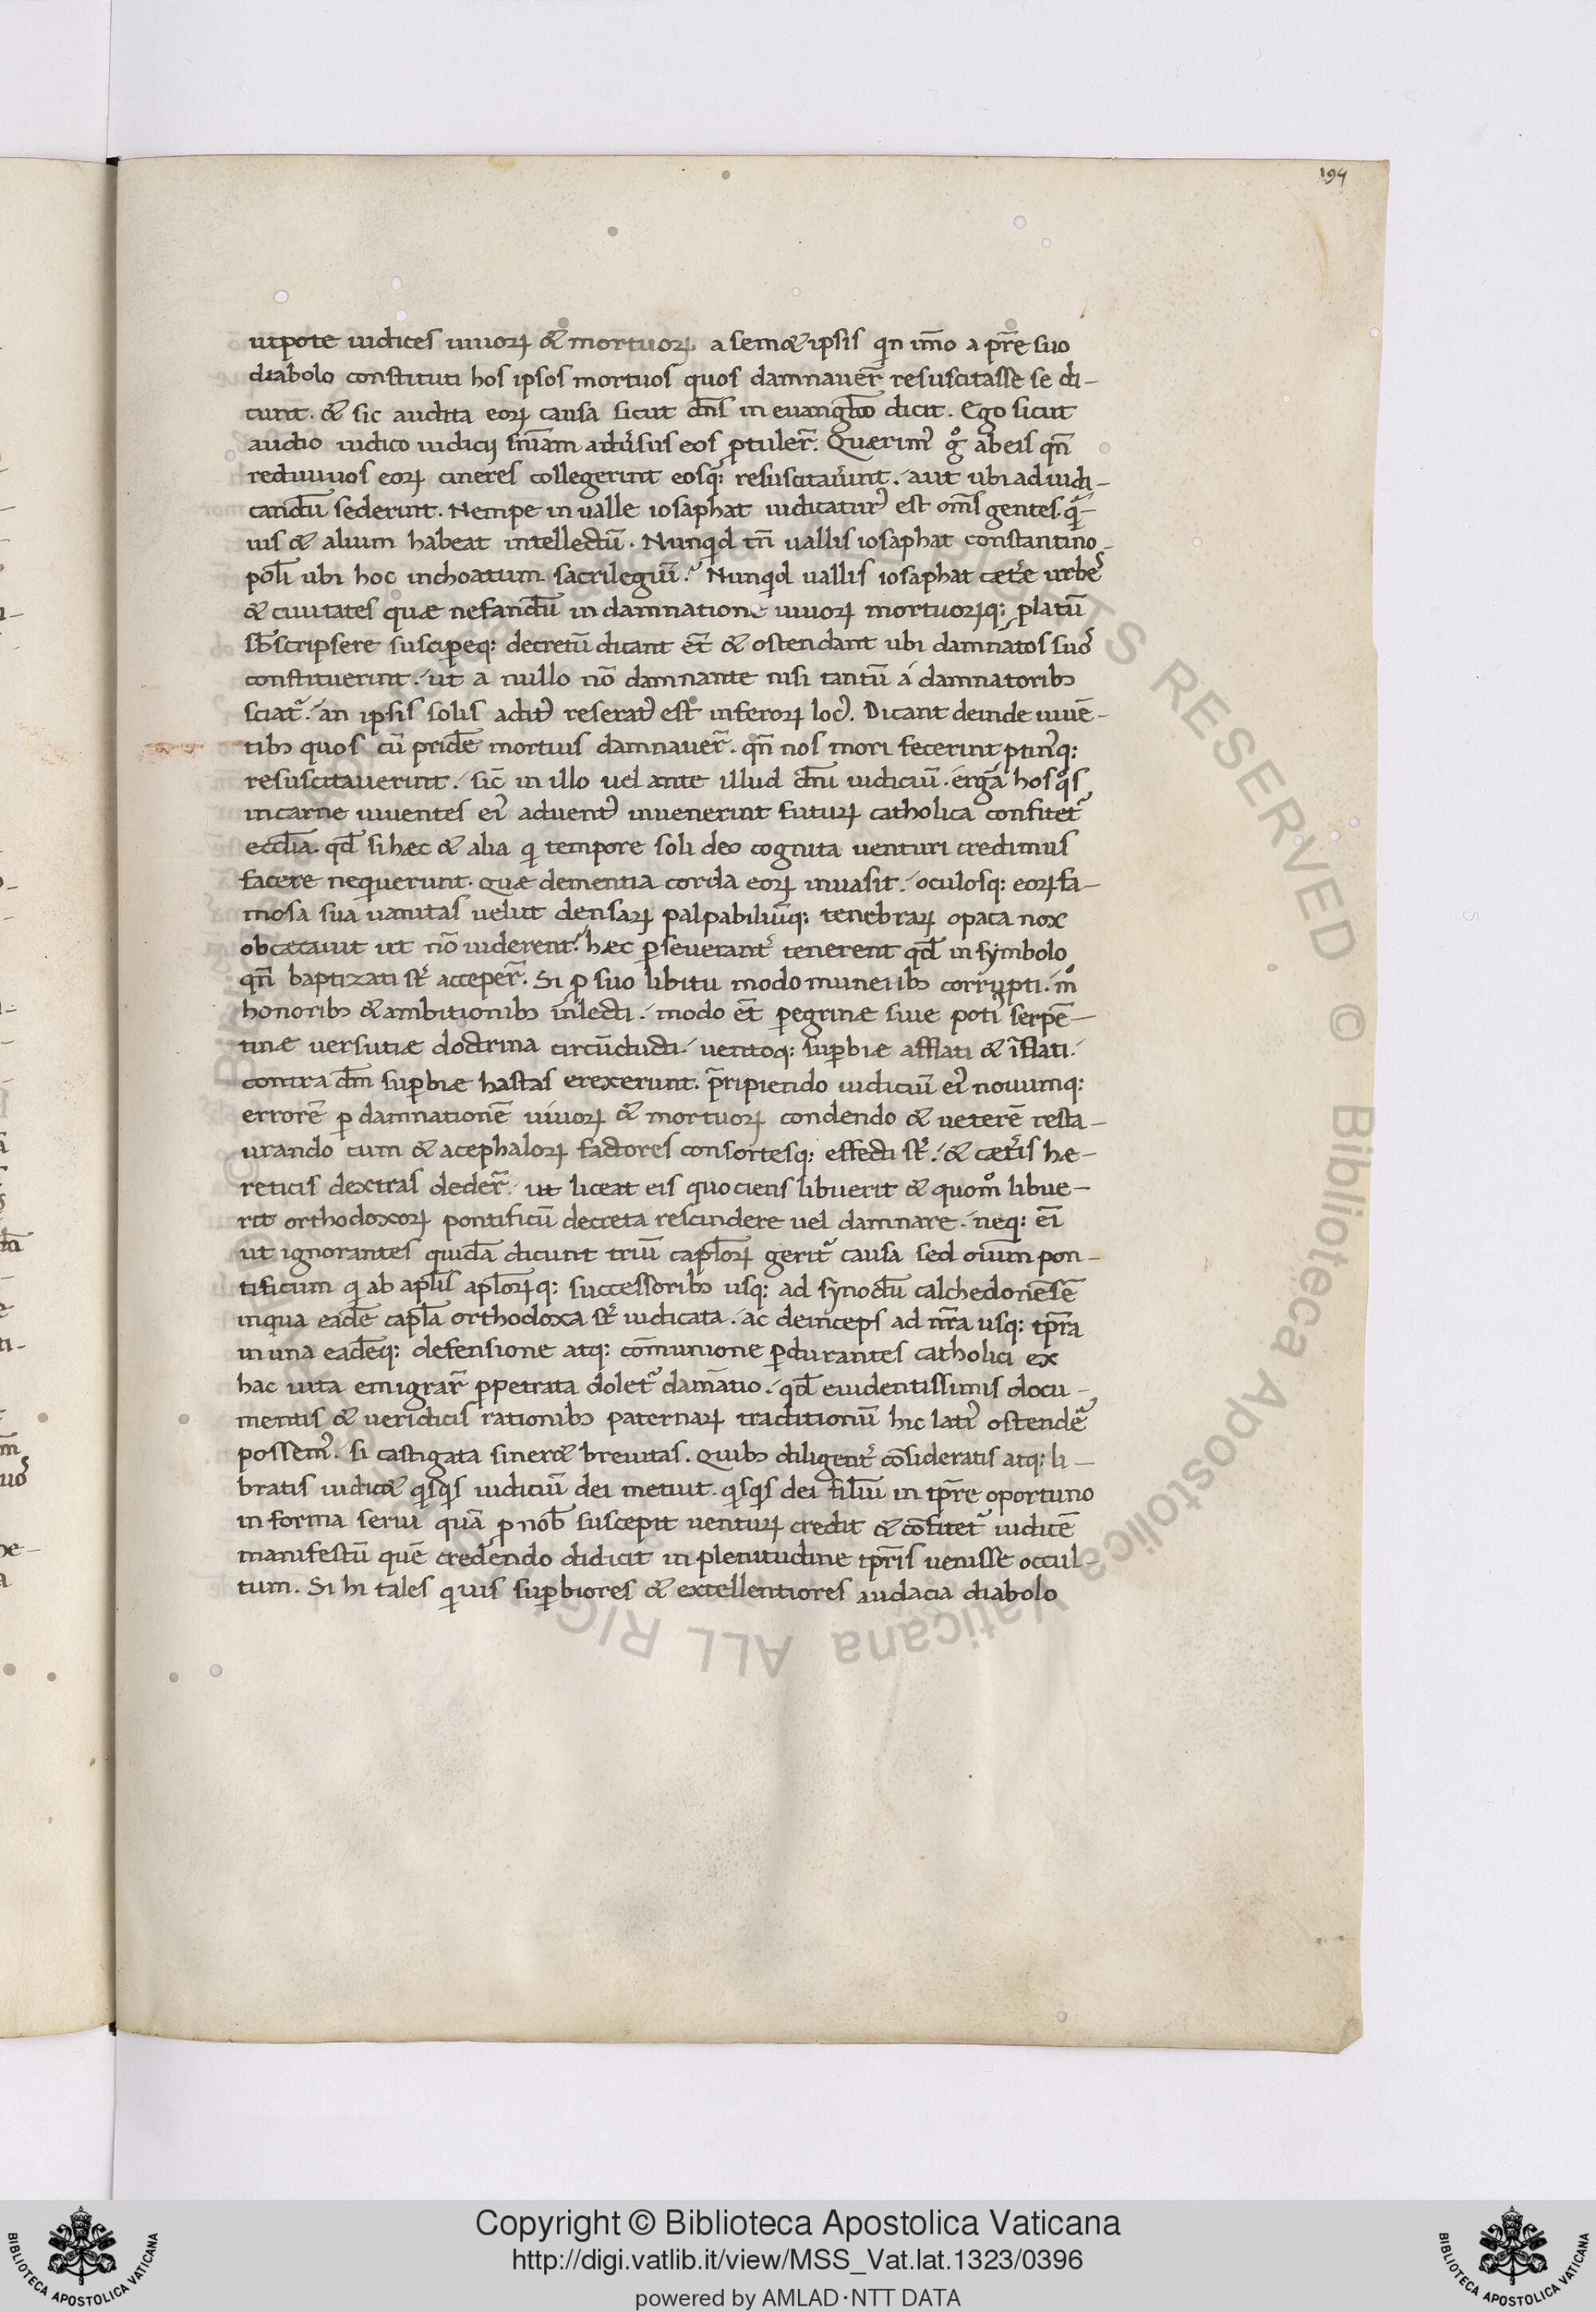 194
utpote iudices uiuoꝝ & mortuoꝝ a sem&ipsis qn im̅o a p̅re suo
diabolo constituti hos ipsos mortuos quos damnauer̅ resuscitasse se di-
cunt. & sic audita eoꝝ causa sicut dn̅s in euangl̅io dicit. Ego sicut
audio iudico iudicij sn̅iam aduˀsus eos ꝓtuler̅. Querimꝰ gͦ ab eis qn̅
rediuiuos eoꝝ cineres collegerint eosq; resuscitauˀint. aut ubi ad iudi-
candu̅ sederint. Nempe in ualle iosaphat iudicaturꝰ est om̅s gentes. qͣ-
uis & alium habeat intellectu̅. Nunqid tn̅ uallis iosaphat constantino-
pol̅i ubi hoc inchoatum sacrilegiu̅? Nunqid uallis iosaphat cætˀe urbes
& ciuitates quæ nefandu̅ in damnatione uiuoꝝ mortuoꝝq; ꝓlatu̅
sb̅scripsere suscipeq; decretu̅ dicant et̅ & ostendant ubi damnatos suos
constituerint. ut a nullo no̅ damnante nisi tantu̅ á damnatoribꝫ
sciatˀ. an ipsis solis aditꝰ reseratꝰ est inferoꝝ locꝰ. Dicant deinde uiue̅-
tibꝫ quos cu̅ pride̅ mortuis damnauer̅. qn̅ nos mori fecerint ptinꝰq;
resuscitauerint. sic̅ in illo uel ante illud dn̅i iudiciu̅. erga̅ hos qͦs
in carne uiuentes eiꝰ aduentꝰ inuenerint futuꝝ catholica confitetˀ
eccl̅ia. qd̅ si hæc & alia q tempore soli deo cognita uenturi credimus
facere nequerunt. quæ dementia corda eoꝝ inuasit. oculosq; eoꝝ fa-
mosa sua uanitas uelut densaꝝ palpabiliu̅q; tenebraꝝ opaca nox
obcæcauit ut no̅ uiderent? hæc ꝑseuerantˀ tenerent qd̅ in symbolo
qn̅ baptizati st̅ acceper̅. Si ꝓ suo libitu modo muneribꝫ corrupti. mͦ
honoribꝫ & ambitionibꝫ inlecti. modo et̅ ꝑegrinæ siue potiˀ serpe̅-
tinæ uersutiæ doctrina circu̅ducti. uentoq; suꝑbiæ afflati & i̅flati.
contra dm̅ suꝑbiæ hastas erexerunt. p̅ripiendo iudiciu̅ eiꝰ nouumq;
errore̅ ꝑ damnatione̅ uiuoꝝ & mortuoꝝ condendo & uetere̅ resta-
urando cum & acephaloꝝ factores consortesq; effecti st̅. & cætˀis hæ-
reticis dextras deder̅. ut liceat eis quociens libuerit & quomͦ libue-
rit orthodoxoꝝ pontificu̅ decreta rescindere uel damnare. neq; ei̅
ut ignorantes quida̅ dicunt triu̅ capl̅oꝝ geritˀ causa sed oiu̅m pon-
tificum q ab apl̅is apl̅oꝝq; successoribꝫ usq; ad synodu̅ calchedone̅se̅
in qua eade̅ capl̅a orthodoxa st̅ iudicata. ac deinceps ad nr̅a usq; tp̅ra
in una eade̅q; defensione atq; co̅munione ꝑdurantes catholici ex
hac uita emigrar̅ ꝑpetrata doletˀ dam̅atio. qd̅ euidentissimis docu-
mentis & ueridicis rationibꝫ paternaꝝ traditionu̅ hic latiˀ ostende̅
possemꝰ. si castigata siner& breuitas. Quibꝫ diligentˀ co̅sideratis atq; li-
bratis iudic& qisqis iudiciu̅ dei metuit. qisqis dei filiu̅ in tp̅re oportuno
in forma serui qua̅ ꝓ nob̅ suscepit uentuꝝ credit & co̅fitetˀ iudice̅
manifestu̅ que̅ credendo didicit in plenitudine tp̅ris uenisse occul-
tum. Si hi tales qͣuis suꝑbiores & excellentiores audacia diabolo
Copyright © Biblioteca Apostolica Vaticana
http://digi.vatlib.it/view/MSS_Vat.lat.1323/0396
powered by AMLAD·NTT DATA